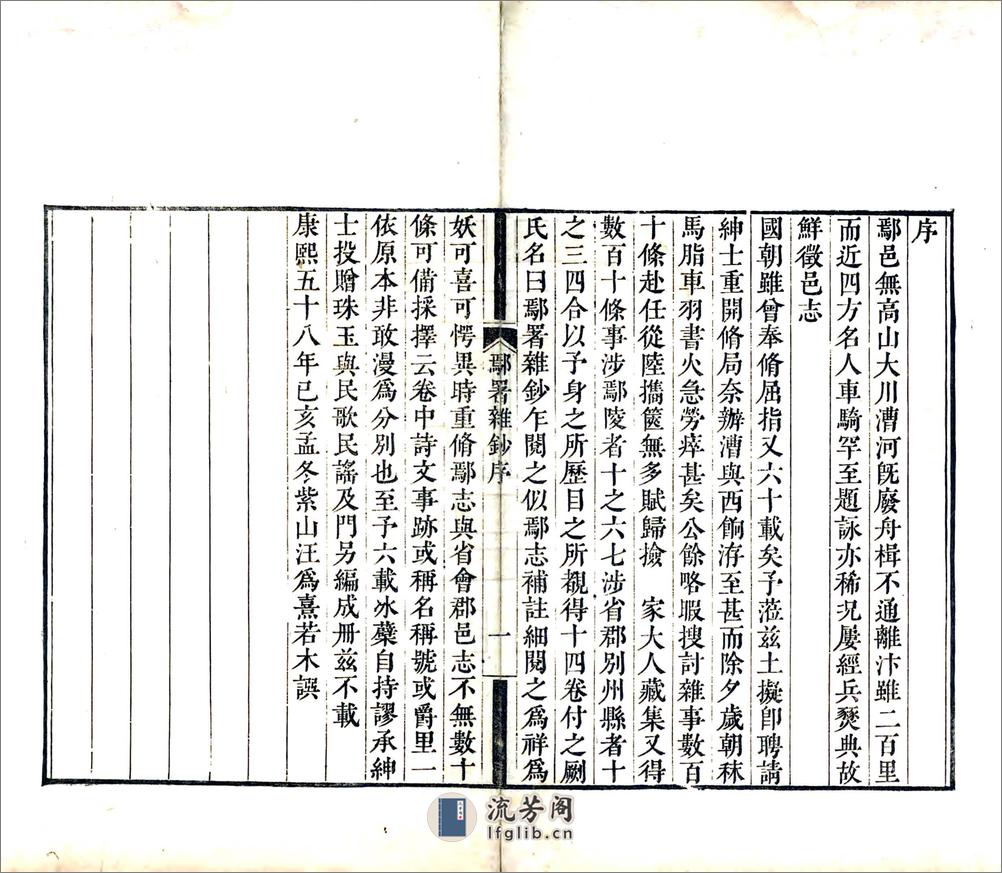 序
鄢邑無高山大川漕河旣廢舟楫不通離汴雖二百里
而近四方名人車騎罕至題詠亦稀况屢經兵燹典故
鮮徵邑志
國朝雖曾奉脩屈指又六十載矣予蒞茲土擬卽聘請
紳士重開脩局奈辦漕與西餉洊至甚而除夕歲朝秣
馬脂車羽書火急勞瘁甚矣公餘咯暇搜討雜事數百
十條赴任從陸攜篋無多賦歸撿　家大人藏集又得
數百十條事涉鄢陵者十之六七涉省郡別州縣者十
之三四合以予身之所歷目之所覩得十四卷付之劂
氏名曰鄢署雜鈔乍閱之似鄢志補註細閱之爲祥爲
鄢署雜鈔序
一
妖可喜可愕異時重脩鄢志與省會郡邑志不無數十
條可備採擇云卷中詩文事跡或稱名稱號或爵里一
依原本非敢漫爲分別也至予六載氷蘗自持謬承紳
士投贈珠玉與民歌民謠及門另編成册茲不載
康熙五十八年己亥孟冬紫山汪爲熹若木譔
流芳阁
lfglib.cn